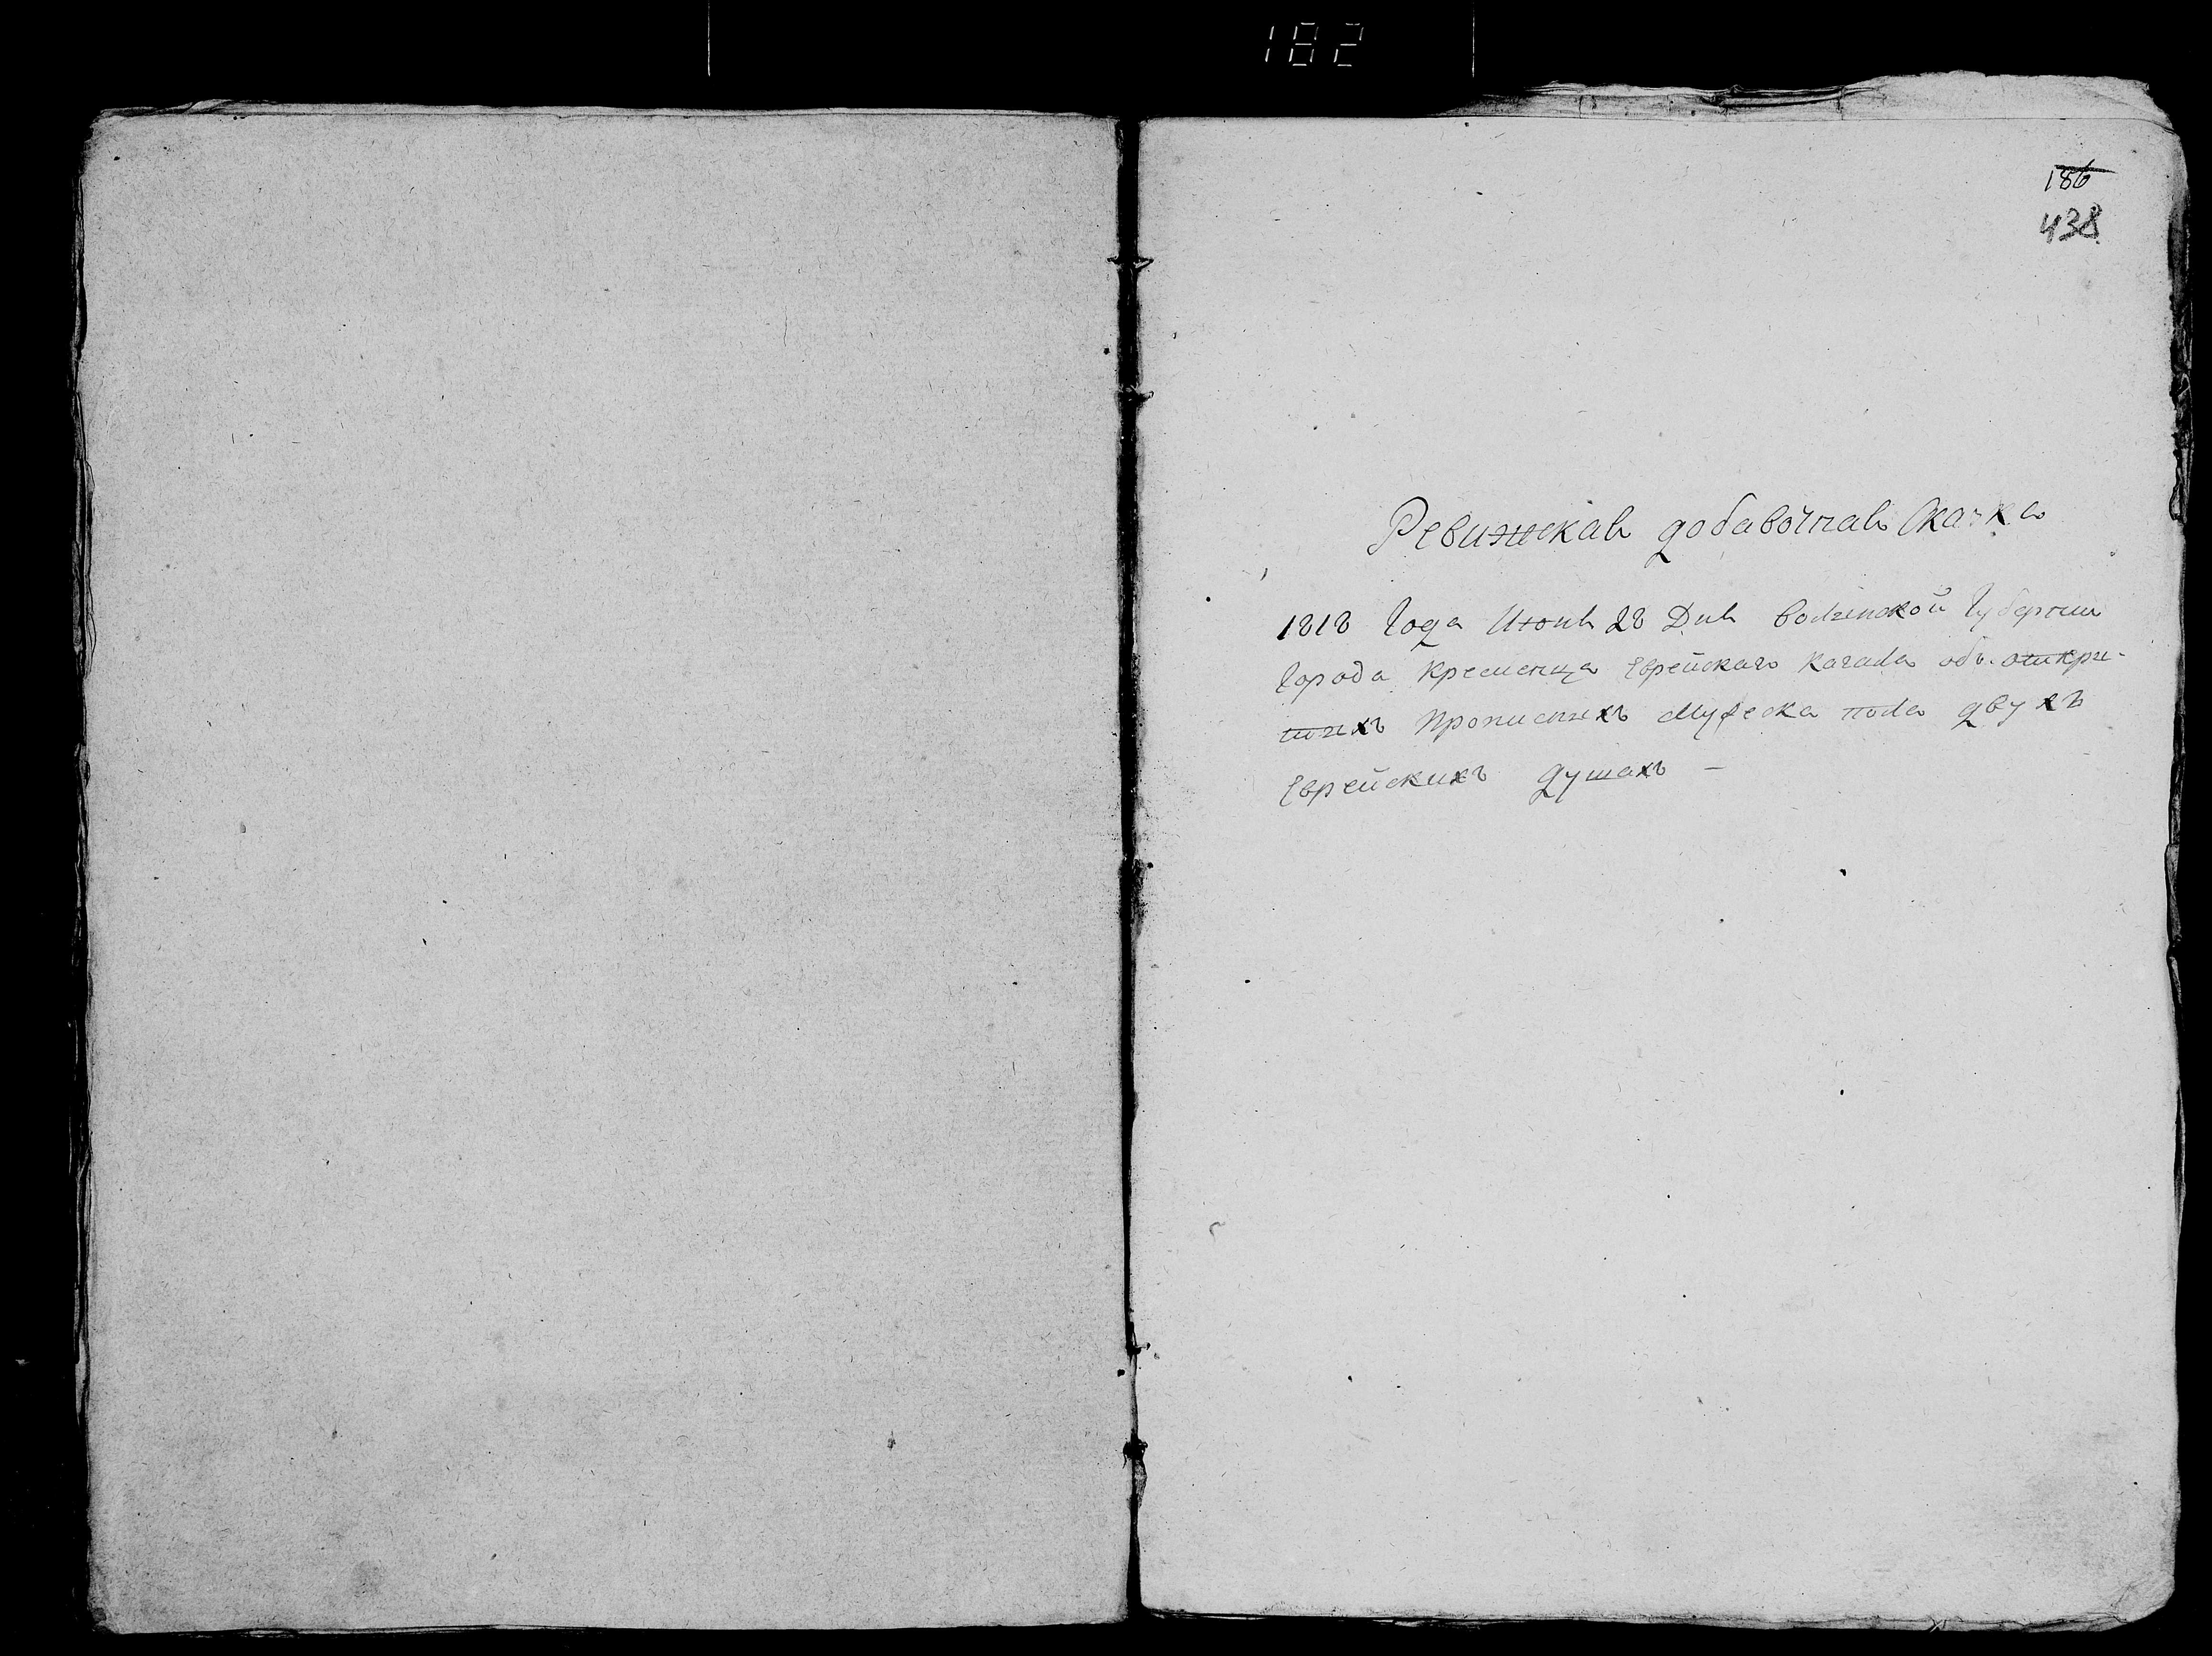 182
186
438
Ревижская добавочная сказка
1818 Года Июня 28 Дня волынской Губернии
Города Кременца Еврейскаго кагала об открытыхъ
прописныхъ Мужеска пола двухъ
Еврейскихъ душахъ —